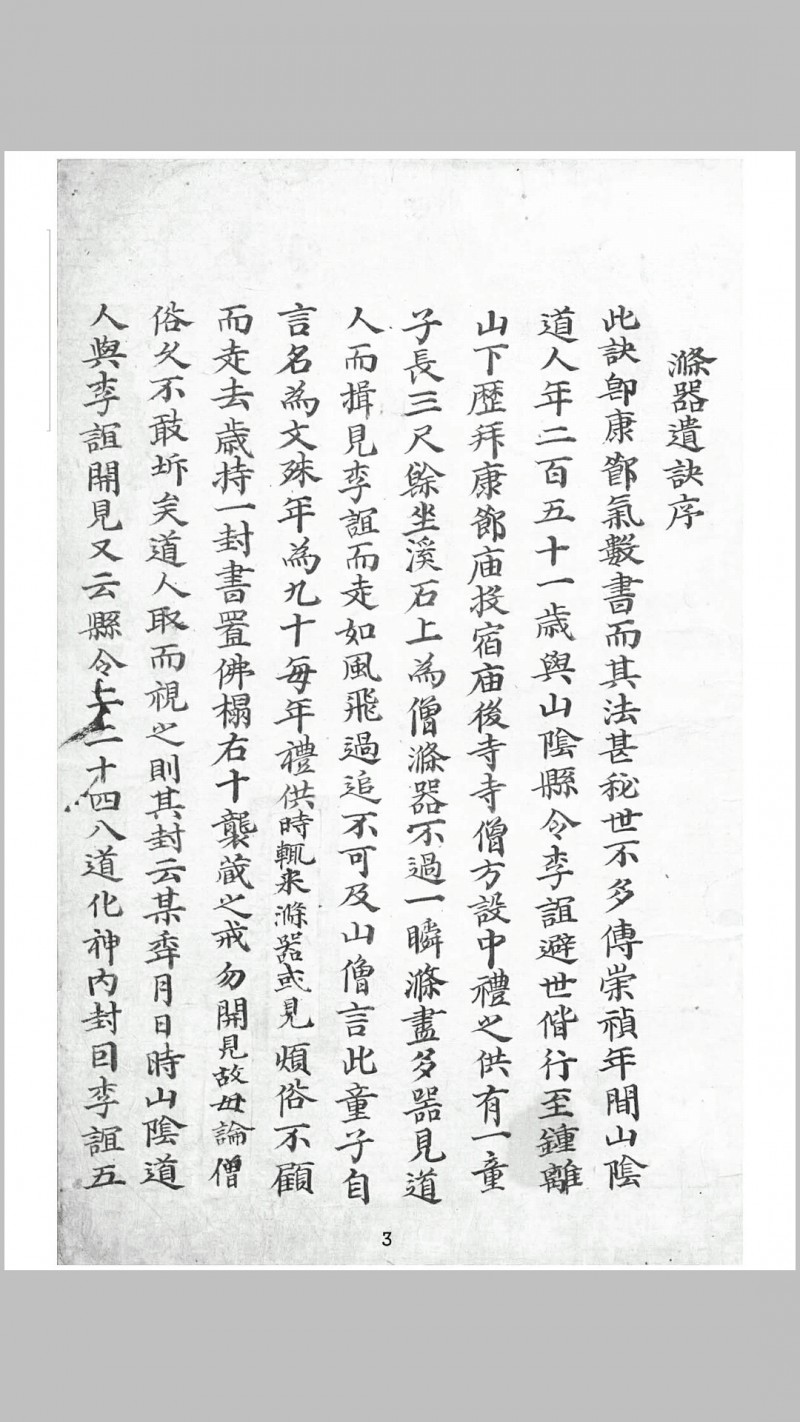 滌器遺訣序
此訣卽康節氣數書而其法甚秘世不多傳崇禎年間山陰
道人年二百五十一歲與山陰縣令李誼避世偕行至鍾離
山下歷拜康節庙投宿庙後寺寺僧方設中禮之供有一童
子長三尺餘坐溪石上為僧滌器不過一瞬滌盡多器見道
人而揖見李誼而走如風飛過追不可及山僧言此童子自
言名為文殊年為九十每年禮供時輒来滌器或見煩俗不顧
而走去歲持一封書置佛榻右十襲藏之戒勿開見故毋論僧
俗久不敢坼矣道人取而視之則其封云某年月日時山陰道
人與李誼開見又云縣令二十四八道化神內封曰李誼五
3